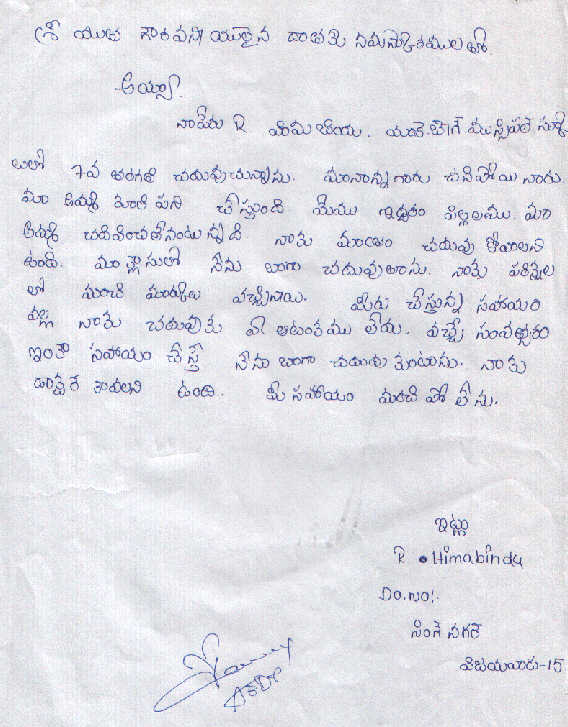 శ్రీ యుత గౌరవనీయులైన దాతకు నమస్కారములతో
అయ్యా.
నాపేరు R హిమబిందు. యం.కె.బేగ్ మున్సిపల్ స్కూ
లులో 7వ తరగతి చదువుచున్నాను. మానాన్నగారు చనిపోయినారు.
మా అమ్మ కూలి పని చేస్తుంది మేము ఇద్దరం పిల్లలము. మా
అమ్మ చదివించలేనంటున్నది నాకు మాత్రం చదువు కోవాలని
ఉంది. మా క్లాసులో నేను బాగా చదువుతాను. నాకు పరీక్షల
లో మంచి మార్కులు వచ్చినాయి. మీరు చేస్తున్న సహాయం
వల్ల నాకు చదువుకు ఏ ఆటంకము లేదు. వచ్చే సంవత్సరం
ఇంకా సహాయం చేస్తే నేను బాగా చదువు కుంటాను. నాకు
డాక్టర్ కావాలని ఉంది. మీ సహాయం మరచి పోలేను.
ఇట్లు
R. Himabindu
Do.No:-
సింగ్ నగర్
విజయవాడ-15